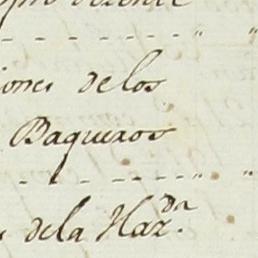 iones de los
Baqueros
de la Haz.da